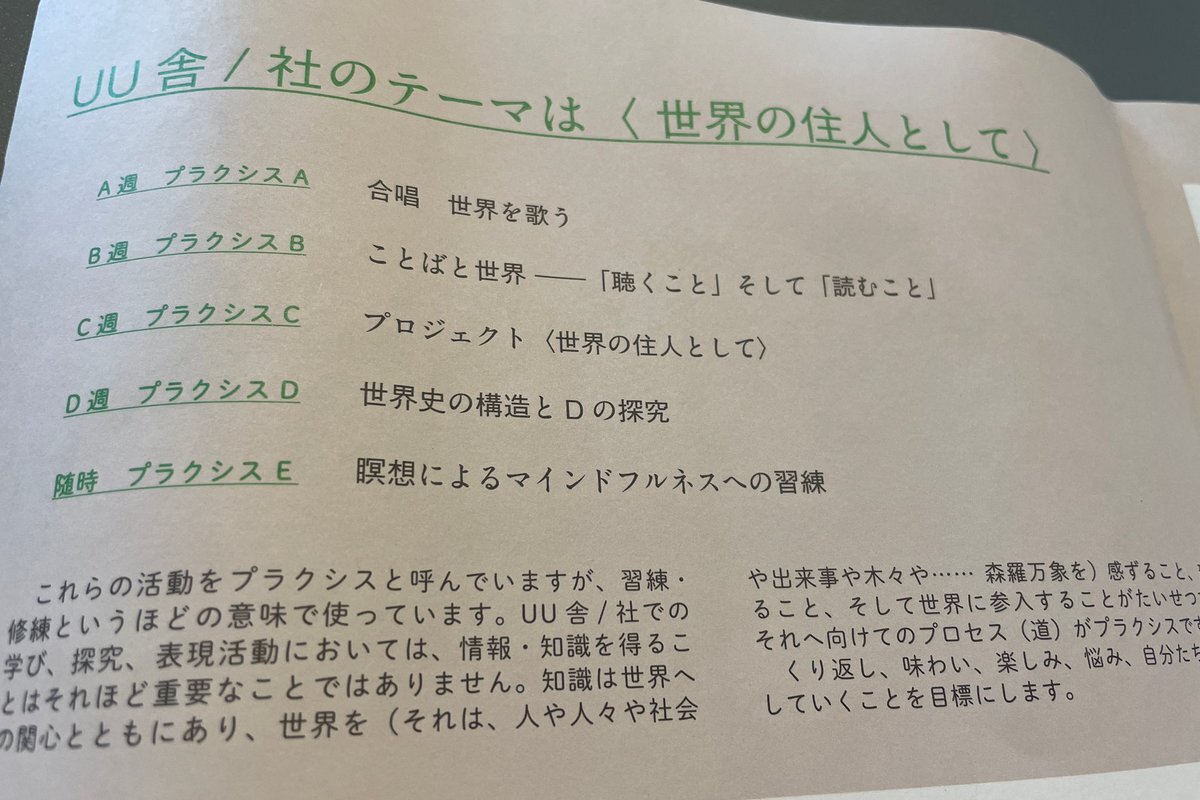 UU 舎 / 社のテーマは〈世界の住人として〉
A 週　プラクシス A　合唱　世界を歌う
B 週　プラクシス B　ことばと世界 ――「聴くこと」そして「読むこと」
C 週　プラクシス C　プロジェクト〈世界の住人として〉
D 週　プラクシス D　世界史の構造と D の探究
随時　プラクシス E　瞑想によるマインドフルネスへの習練
これらの活動をプラクシスと呼んでいますが、習練・
修練というほどの意味で使っています。UU 舎 / 社での
学び、探究、表現活動においては、情報・知識を得るこ
とはそれほど重要なことではありません。知識は世界へ
の関心とともにあり、世界を（それは、人や人々や社会
や出来事や木々や…… 森羅万象を）感ずること、
ること、そして世界に参入することがたいせつ
それへ向けてのプロセス（道）がプラクシスです
くり返し、味わい、楽しみ、悩み、自分たち
していくことを目標にします。